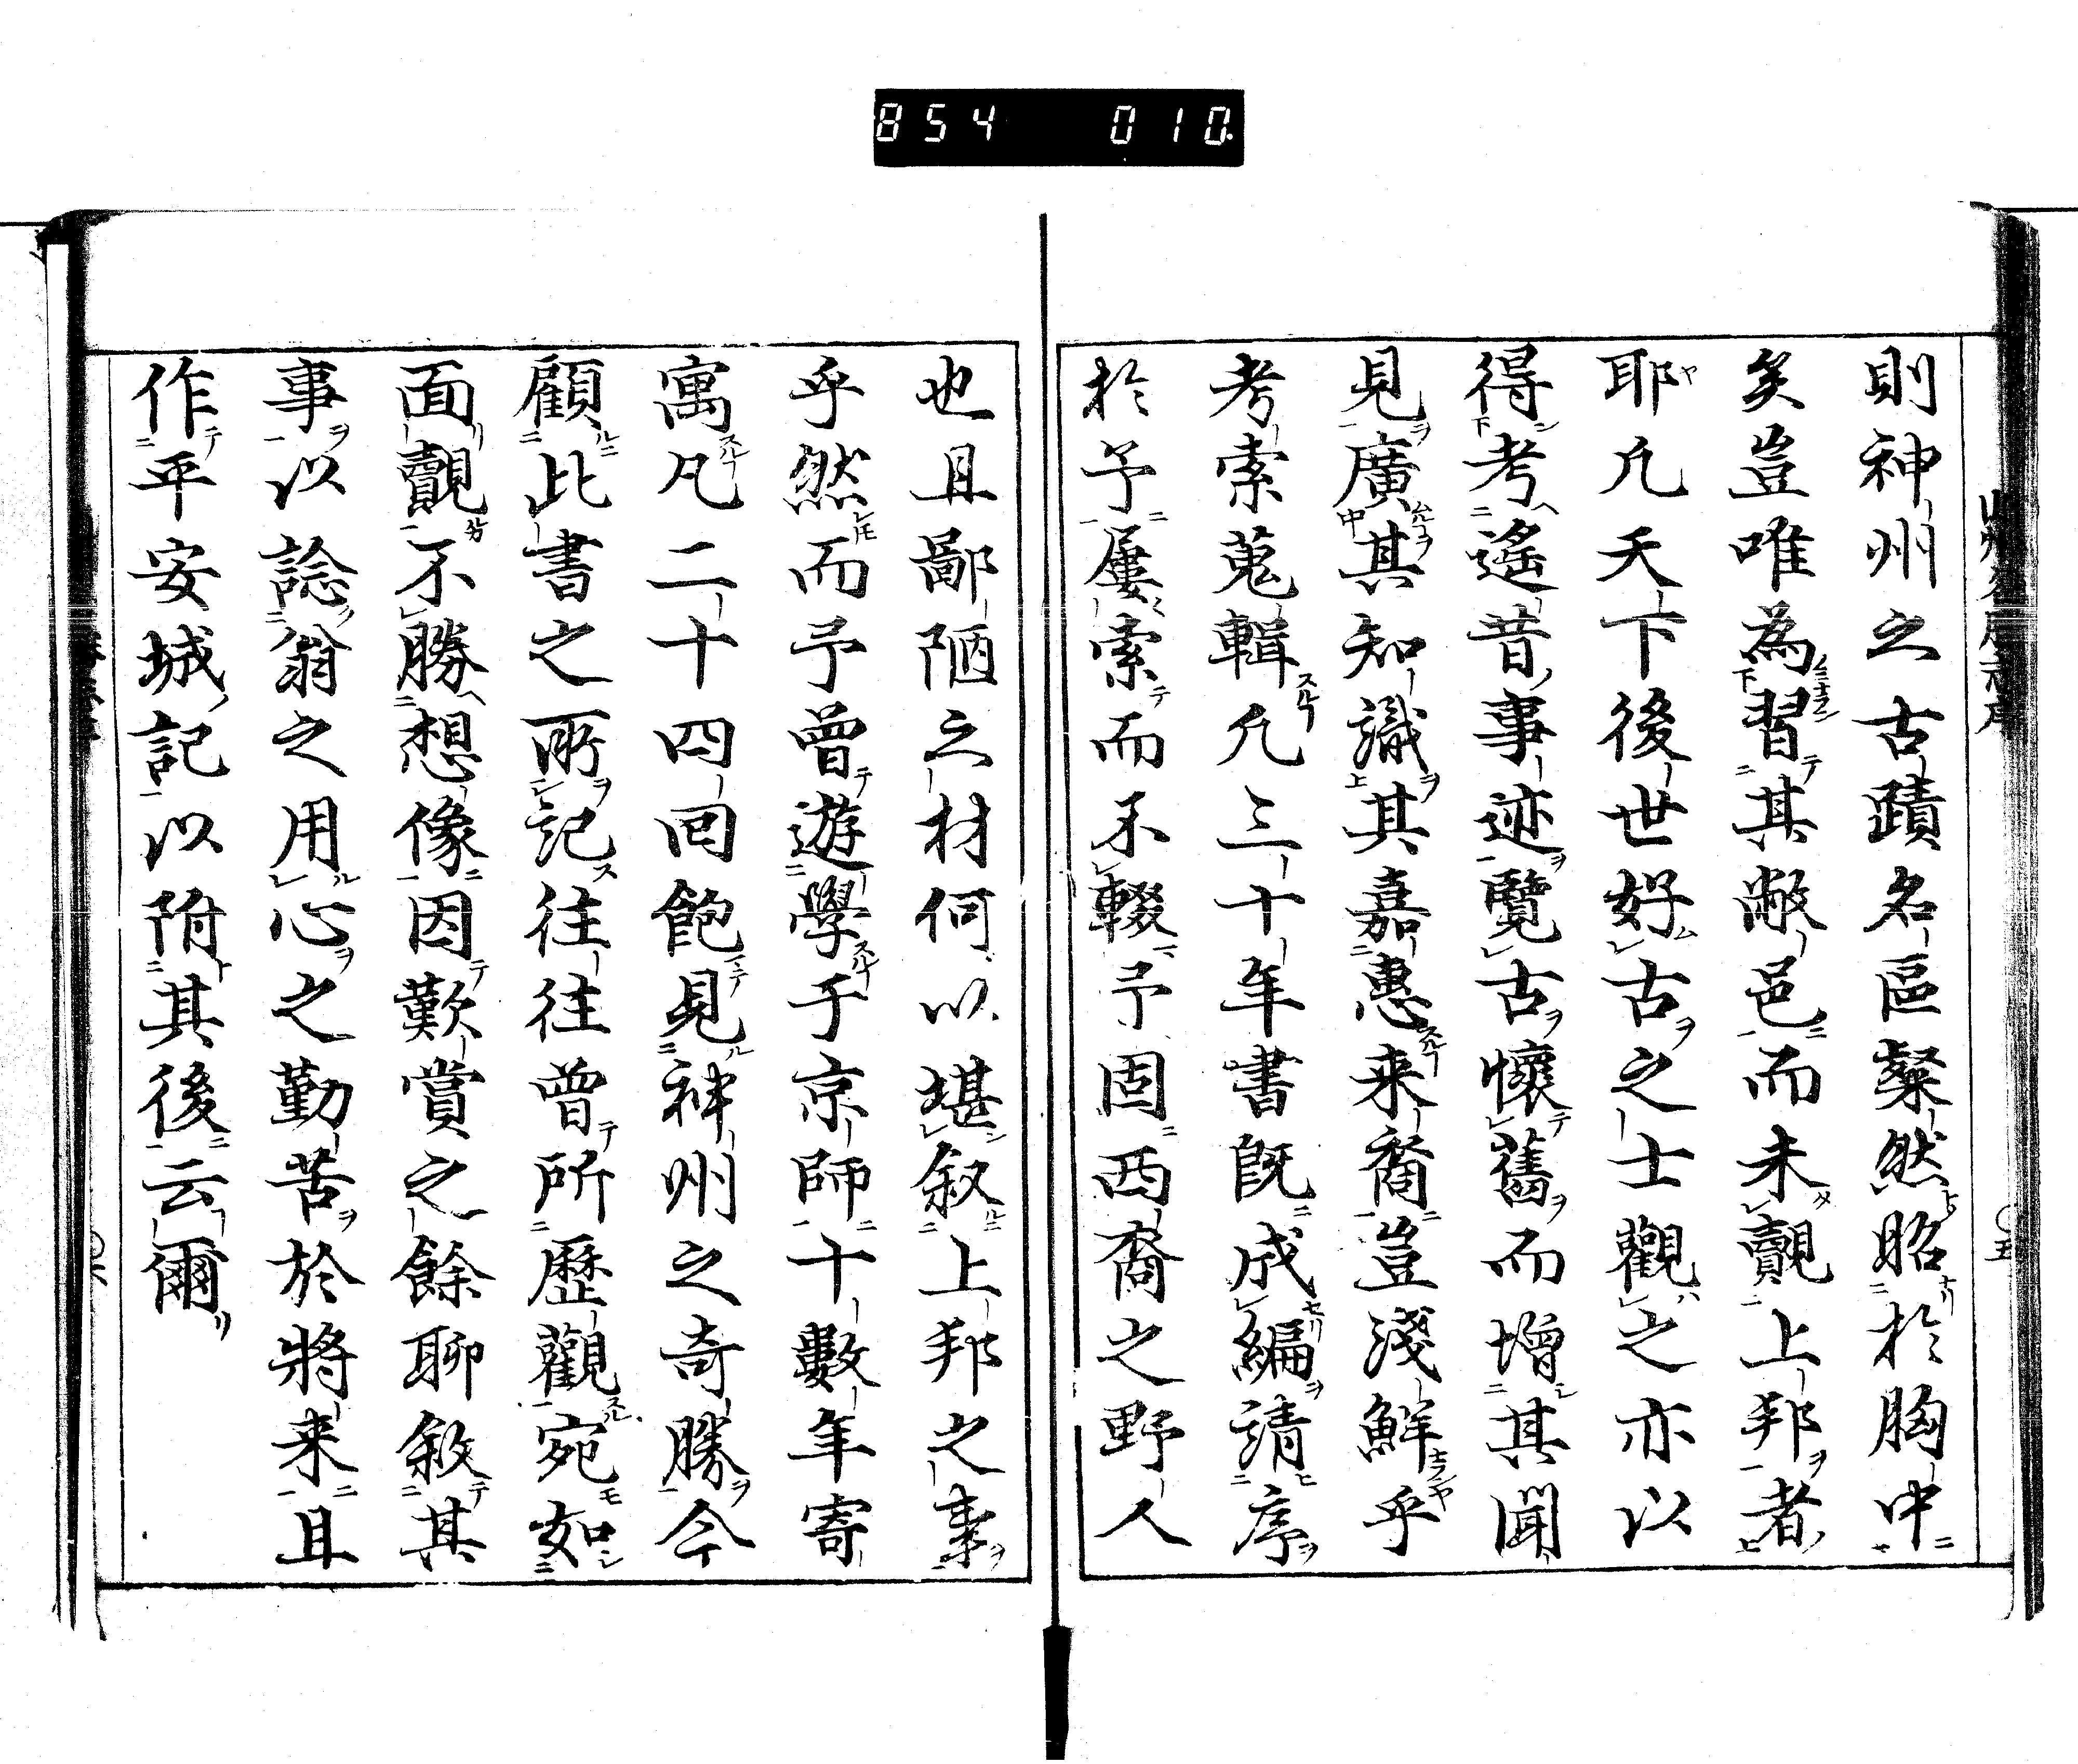 854 010
則神州之古蹟名區粲然昭於胸中
矣豈唯為習其敝邑而未覿上邦者
耶凡天下後世好古之士觀之亦以
得考遙昔事迹覽古懷舊而增其聞
見廣其知識其嘉惠来裔豈淺鮮乎
考索蒐輯凡三十年書既成編請序
於予屢索而不輟予固西裔之野人
也且鄙陋之材何以堪叙上邦之事
乎然而予曾遊學于京師十數年寄
寓凡二十四回飽見神州之奇勝今
顧此書之所記往往曾所歷觀宛如
面覿不勝想像因歎賞之餘聊敘其
事以諗翁之用心之勤苦於將来且
作平安城記以附其後云爾